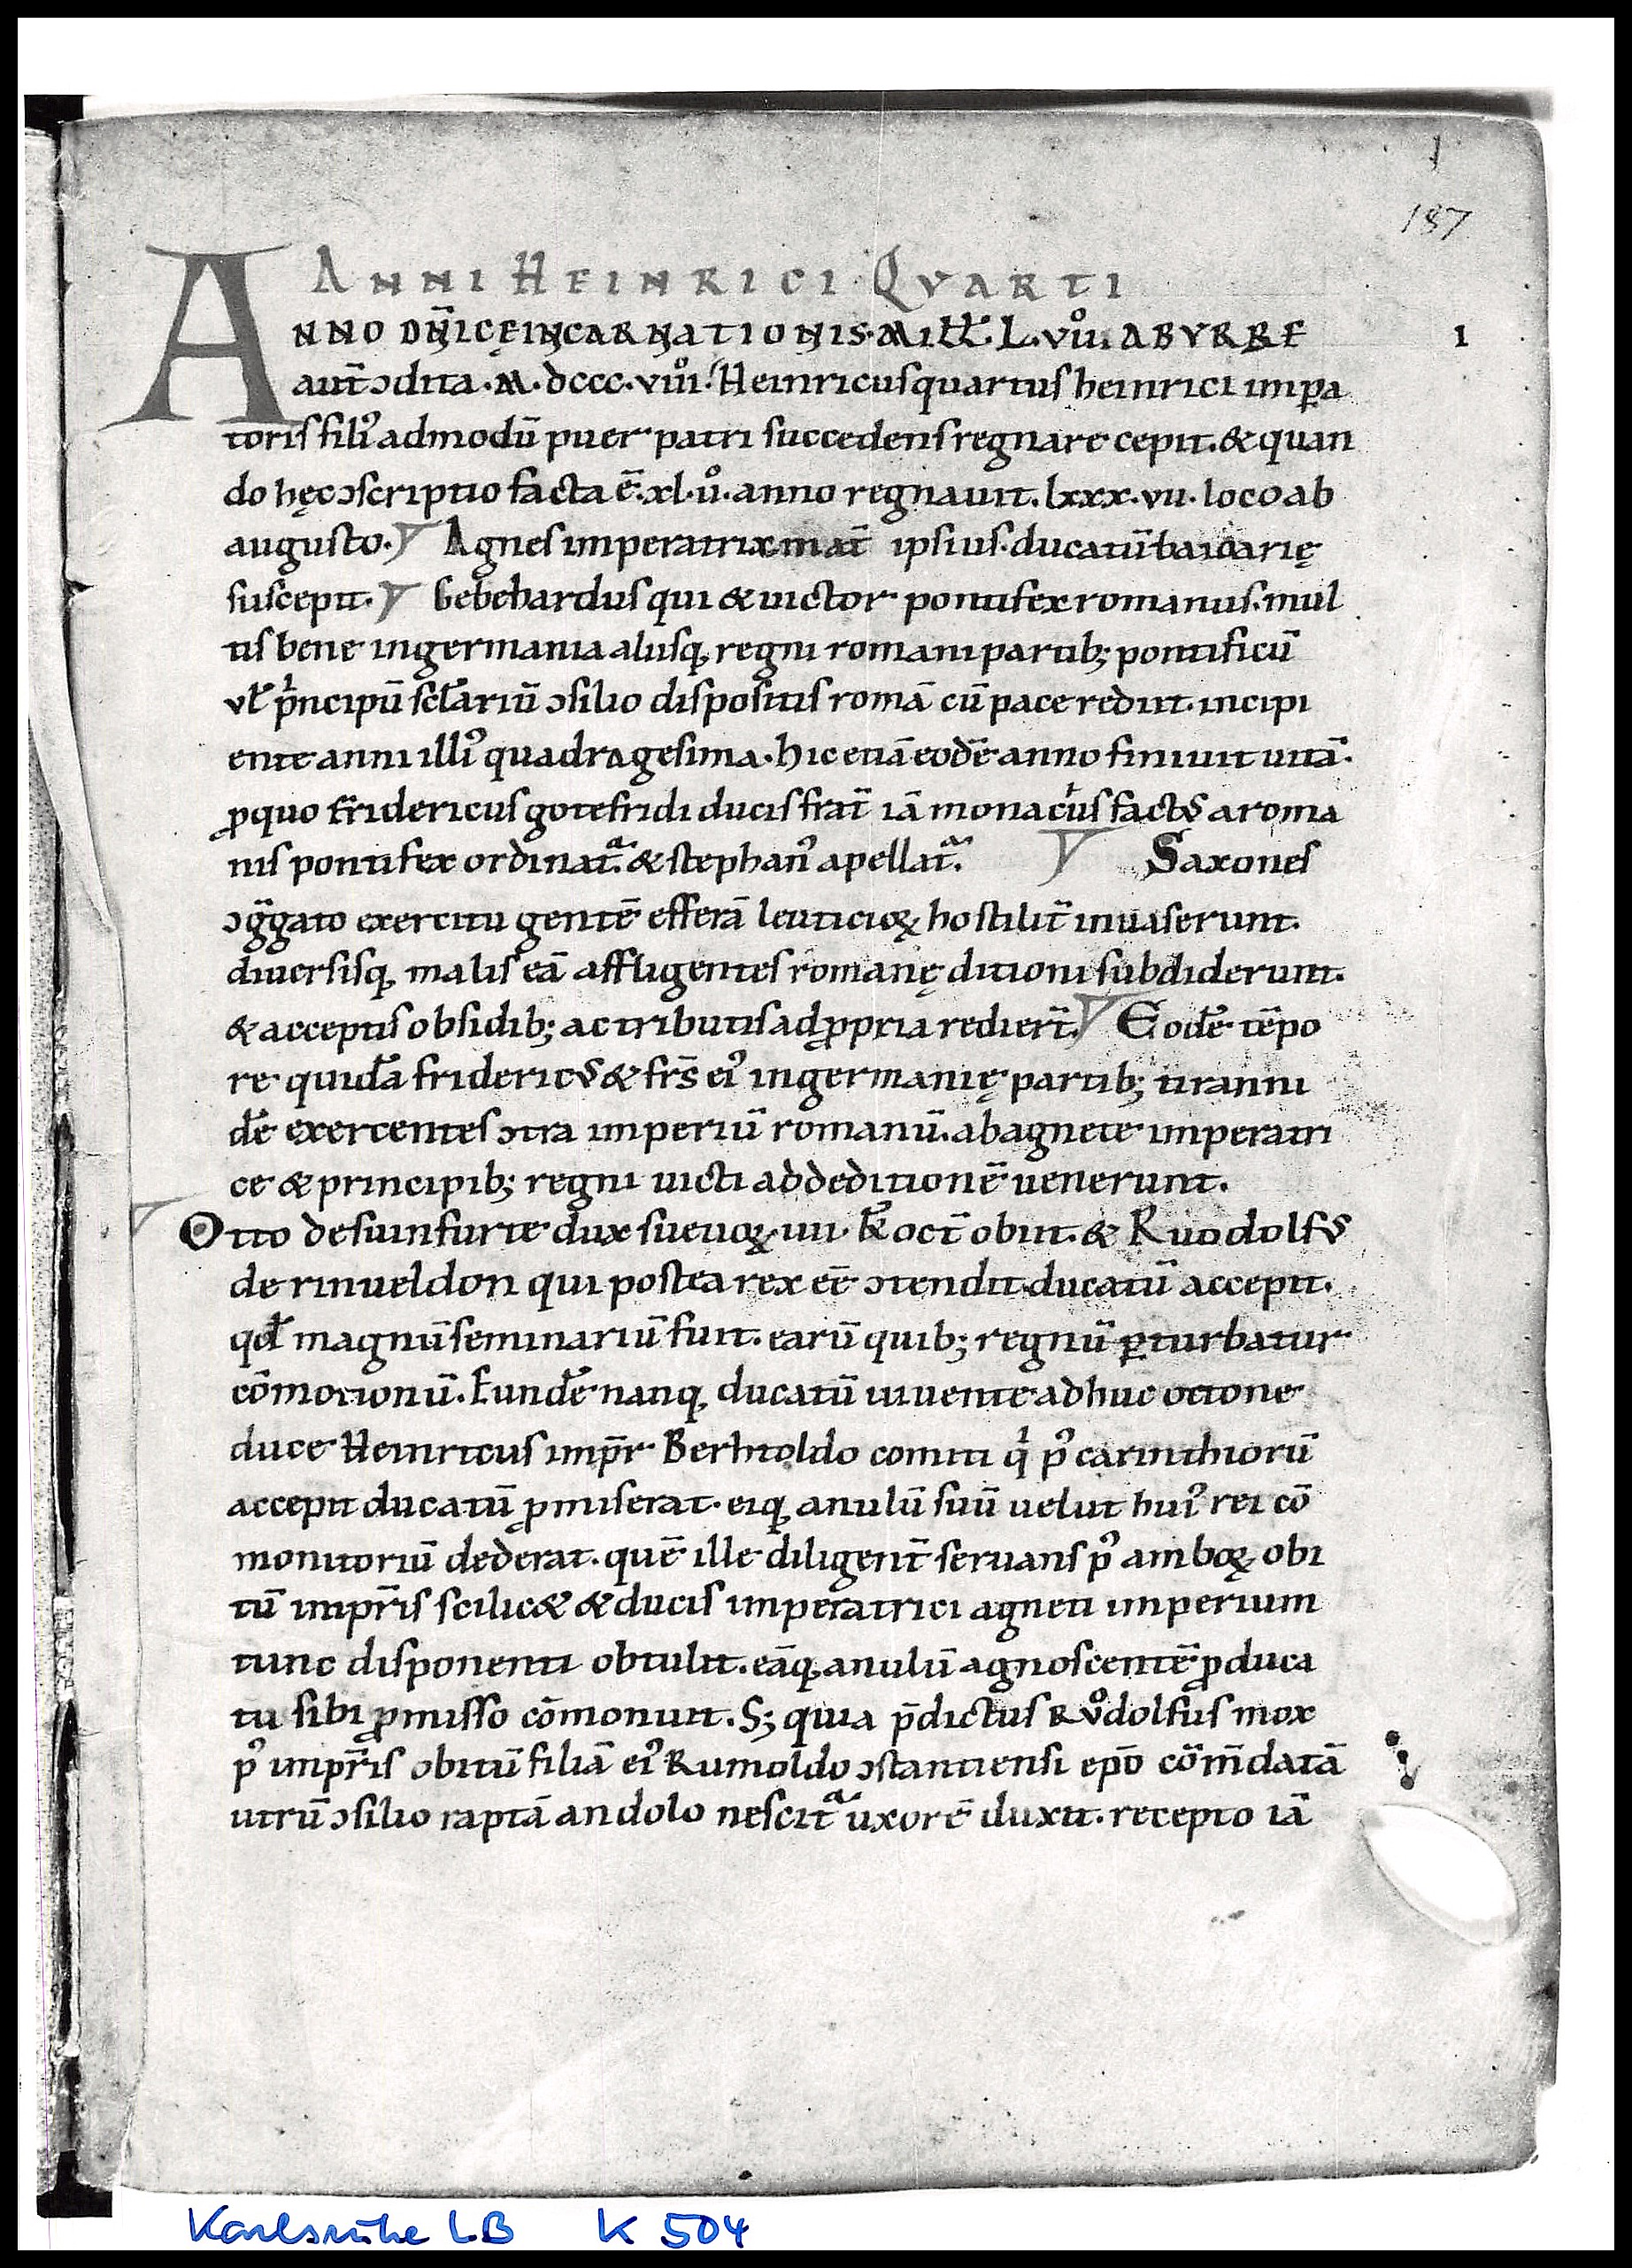 1
187
ANNI HEINRICI QVARTI
ANNO DN̄ICĘ INCARNATIONIS. MILL̄. L. VIIº. AB VRBE
aut̄ ↄdita. M. dccc. viiiº. Heinricus quartus heinrici imꝑa
toris fili᾽ admodū puer patri succedens regnare cepit. & quan
do hęc ↄscriptio facta ē. xl. uº. anno regnauit. lxxx. vii. loco ab
augusto. Agnes imperatrix mat̄ ipsius. ducatū baioarię
suscepit. Gebehardus qui & uictor pontifex romanus. mul
tis bene in germania aliisq; regni romani partib; pontificū
vl̄ pͥncipū scl̄ariū ↄsilio dispositis romā cū pace rediit. incipi
ente anni illi᾽ quadragesima. hic etiā eodē anno finiuit uitā.
ꝓ quo fridericus gotefridi ducis frat̄ iā monachus factꝰ a roma
nis pontifex ordinat᷑. & stephan᾽ apellat᷑. Saxones
ↄḡgato exercitu gentē efferā leuticioꝝ hostilit̄ inuaserunt.
diuersisq; malis eā affligentes romanę ditioni subdiderunt.
& acceptis obsidib; ac tributis ad ꝓpria redier̄t. Eodē tēpo
re quidā fridericꝰ & fr̄s ei᾽ in germanię partib; tiranni
dē exercentes ↄtra imperiū romanū. ab agnete imperatri
ce & principib; regni uicti ad deditionē uenerunt.
Otto de suinfurte dux sueuoꝝ iiii. kl̄ oct̄ obiit. & Ruodolfꝰ
de rinueldon qui postea rex eē ↄtendit. ducatū accepit.
qd̄ magnū seminariū fuit. earū quib; regnū ꝑturbatur
cōmotionū. Eundē nanq; ducatū uiuente adhuc ottone
duce Heinricus imp̄r Berhtoldo comiti qͥ p᾽ carinthiorū
accepit ducatū ꝓmiserat. eiq; anulū suū uelut hui᾽ rei cō
monitoriū dederat. quē ille diligent̄ seruans p᾽ amboꝝ obi
tū imp̄ris scilic& & ducis imperatrici agneti imperium
tunc disponenti obtulit. eāq; anulū agnoscentē ꝓ duca
tu sibi ꝓmisso cōmonuit. S; quia p̄dictus Rvͦdolfus mox
p᾽ imp̄ris obitū filiā ei᾽ Rumoldo ↄstantiensi ep̄o cōm̄datā
utrū ↄsilio raptā an dolo nescit᷑ uxorē duxit. recepto iā
Karlsruhe LB K 504